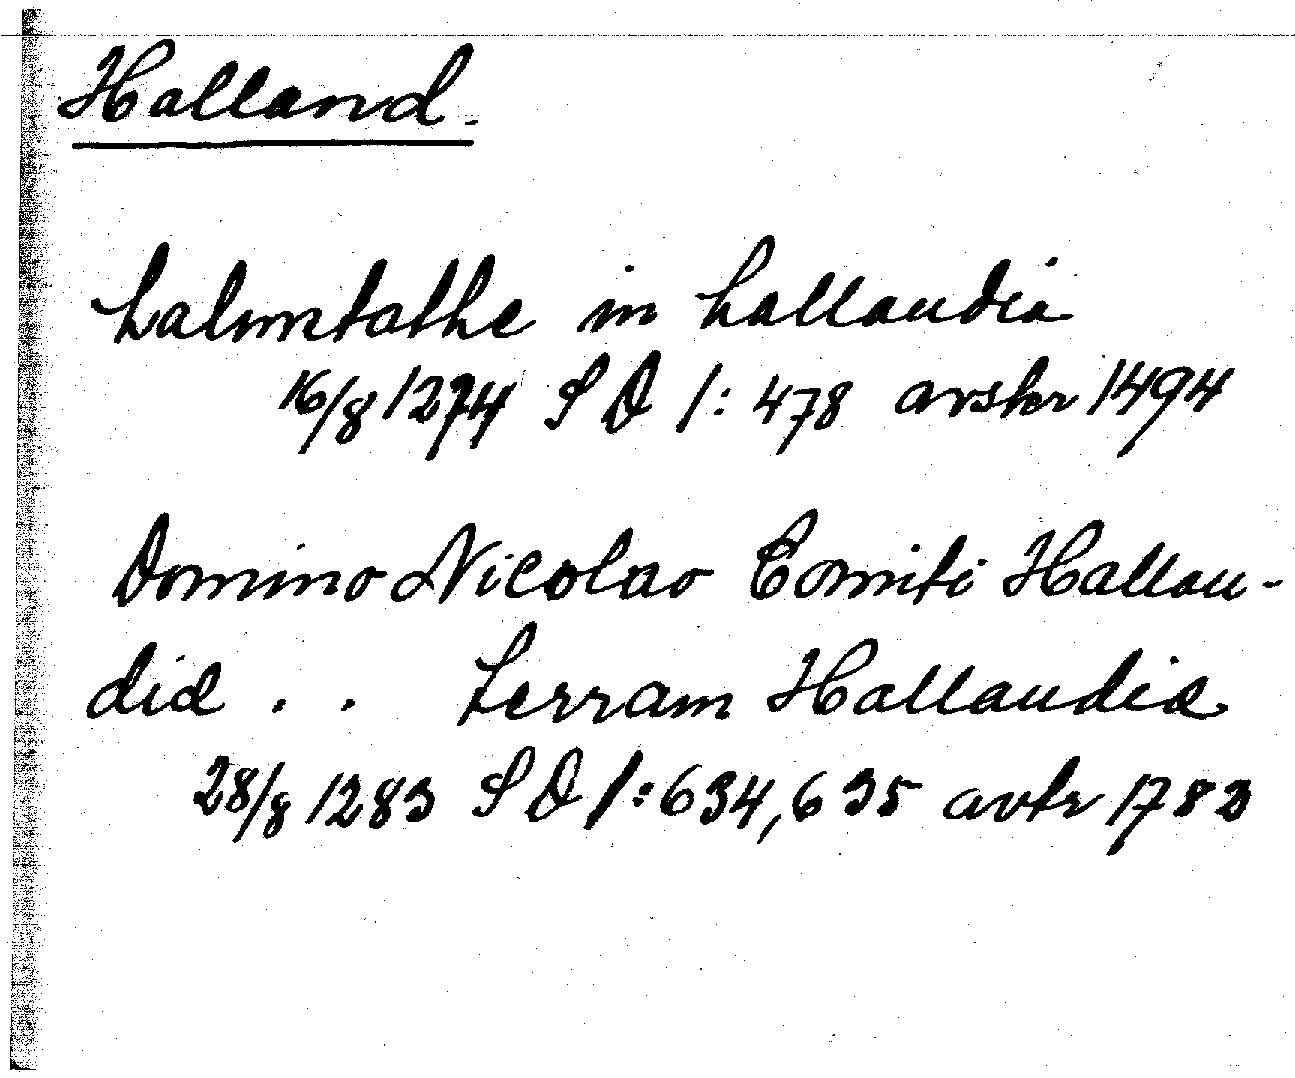 Halland.
halmstathe in hallandia
16/8 1274 SD 1: 478 avskr 1494
Domino Nicolao Comiti Hallan-
diæ . . terram Hallandiæ
28/8 1283 SD 1: 634, 635 avtr 1783